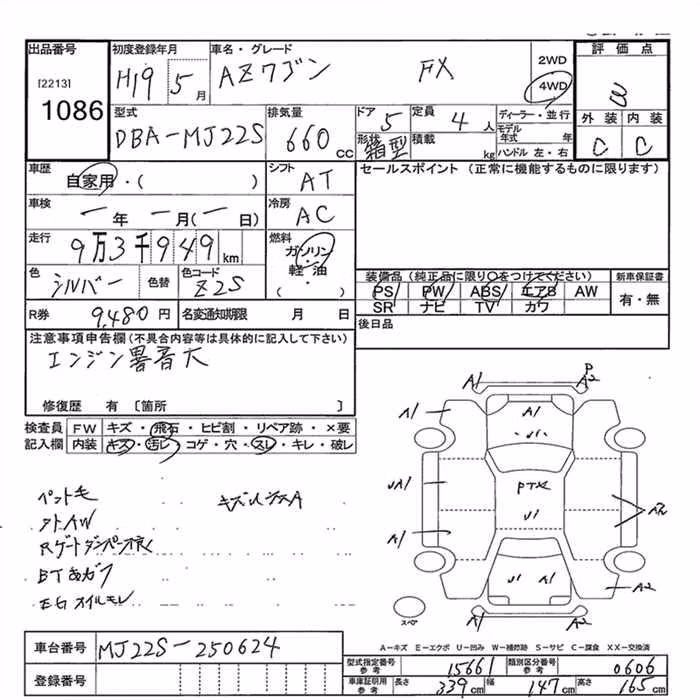 出品番号 初度登録年月 車名・グレード 評価点
[2213] H19 5月 AZワゴン FX 2WD 4WD
1086 3
外装 内装
型式 排気量 ドア 定員 ディーラー・並行 C C
DBA-MJ22S 660cc 5 4人 モデル年式 年
形状 箱型 積載 kg ハンドル 左・右
車歴 シフト セールスポイント (正常に機能するものに限ります)
自家用・( ) AT
車検 冷房
ー年 ー月(ー日) AC
走行 燃料
9万3千949km ガソリン
色 色コード 軽・油 装備品 (純正品に限り○をつけてください) 新車保証書
シルバー 色替 Z2S (・) PS PW ABS エアB AW 有・無
SR ナビ TV カワ
R券 9,480円 名変通知期限 月 日 後日品
注意事項申告欄 (不具合内容等は具体的に記入して下さい)
エンジン異音大
修復歴 有 〔箇所 〕
検査員 FW キズ・飛石・ヒビ割・リペア跡・×要
記入欄 内装 キズ・汚レ・コゲ・穴・スレ・キレ・破レ
ペット毛
Rゲートダンパー不良
EGオイルモレ
A1 P A2
A1 A1
A1 A2
U1
A1
U1 A1 A2
A1 A2
スペア
A-キズ E-エクボ U-凹み W-補修跡 S-サビ C-腐食 XX-交換済
車台番号 MJ22S-250624
型式指定番号 参考 15661 類別区分番号 参考 0606
登録番号 車庫証明用 参考 長さ 339cm 幅 147cm 高さ 165cm